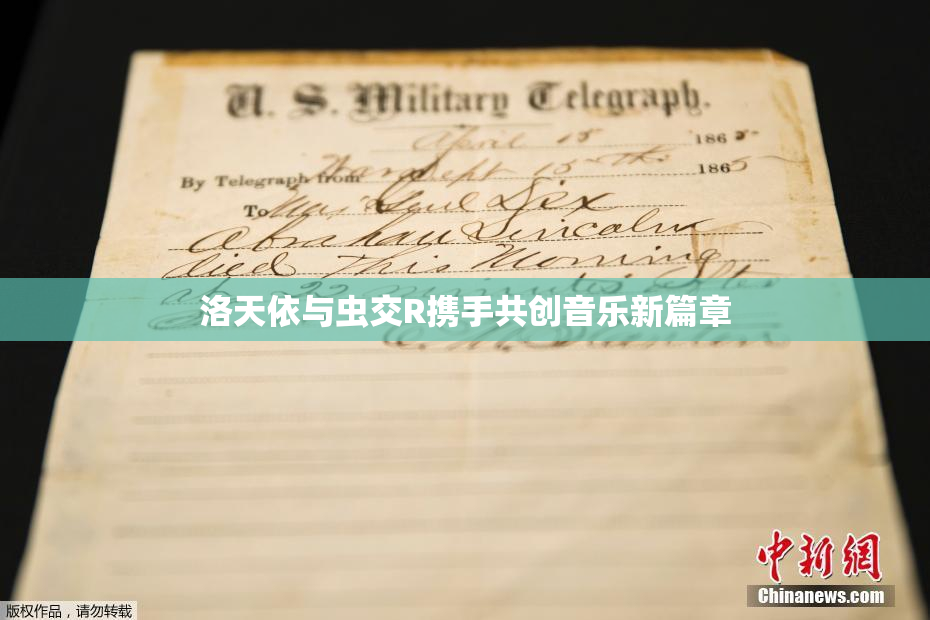 U. S. Military Telegraph.
April 15 1865
By Telegraph from War Dept 15th 1865
To Maj Genl Dix
Abraham Lincoln
died This Morning
at 22 minutes after
洛天依与虫交R携手共创音乐新篇章
E. M. Stanton
中新网
Chinanews.com
版权作品，请勿转载